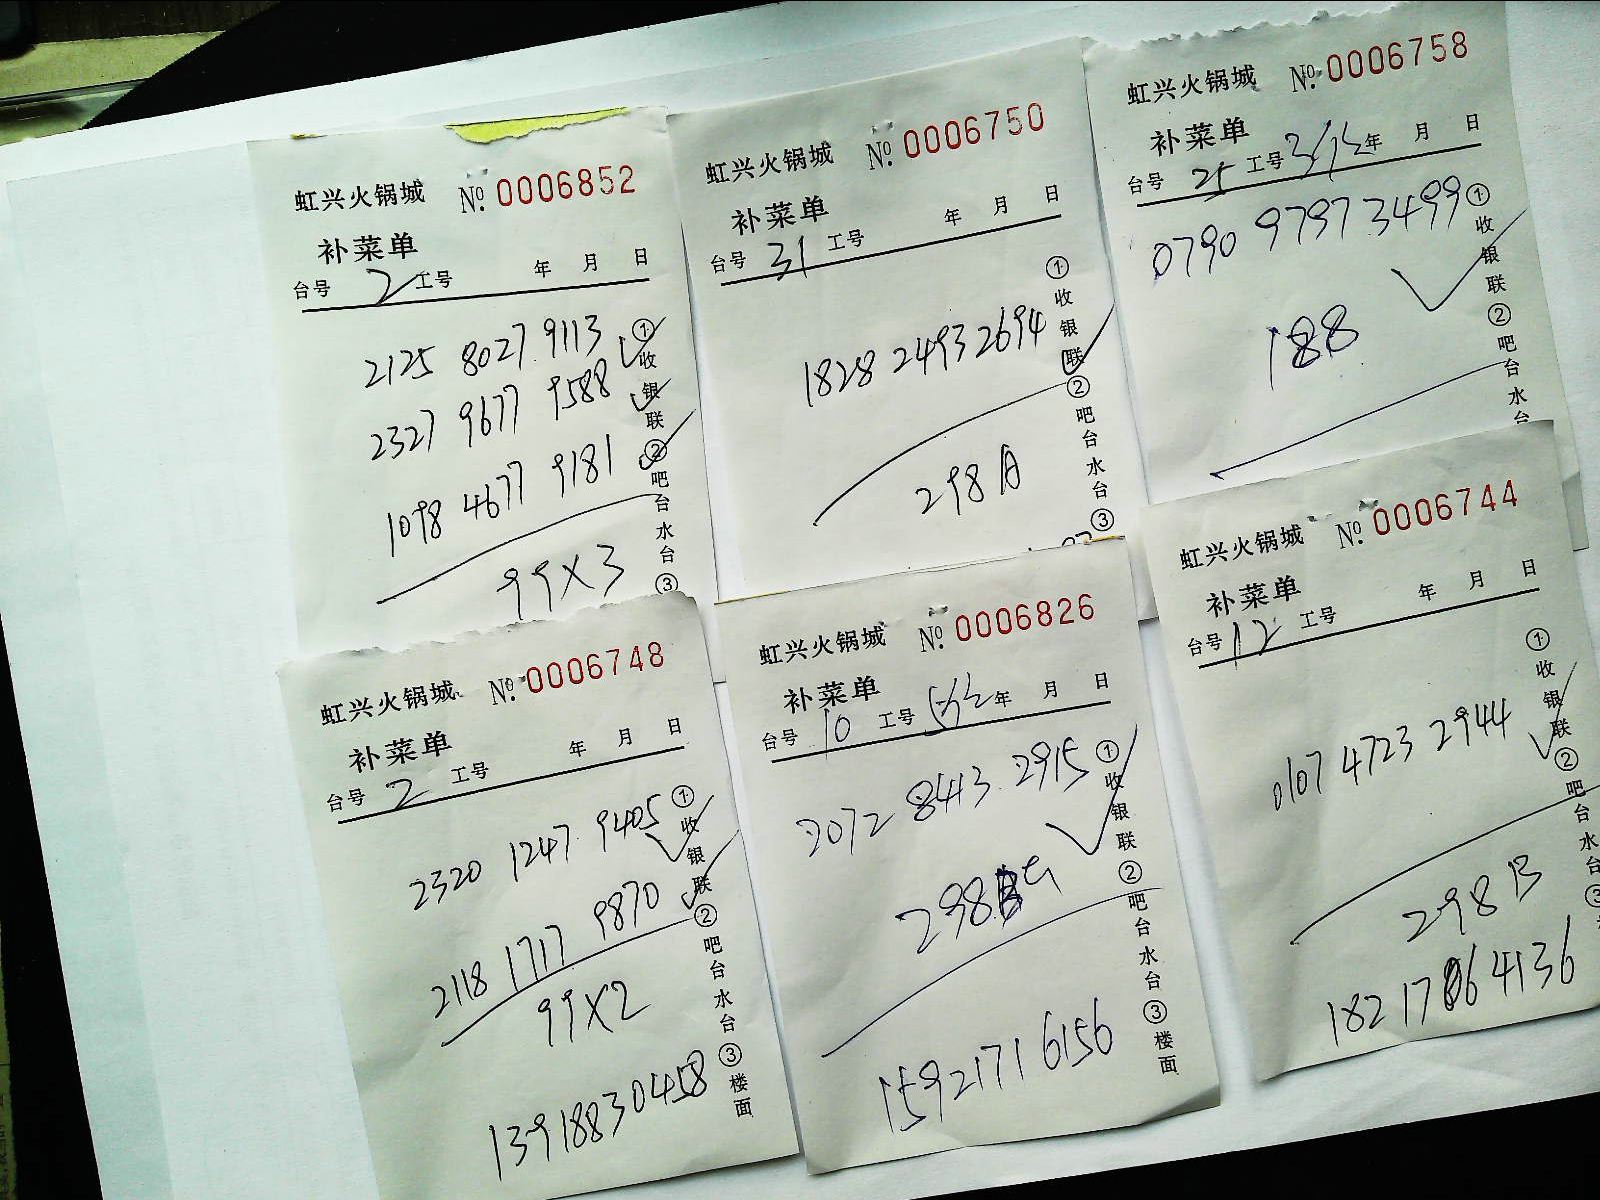 虹兴火锅城 №. 0006852
补菜单
台号 2 工号 年 月 日
2125 8027 9113
2327 9677 9588
1098 4677 9181
99X3
①收银联②吧台水台③
虹兴火锅城 №. 0006750
补菜单
台号 31 工号 年 月 日
1828 2493 2694
298A
①收银联②吧台水台③
虹兴火锅城 №. 0006758
补菜单
台号 25 工号 年 月 日
0790 9797 3499
188
①收银联②吧台水台
虹兴火锅城 №. 0006748
补菜单
台号 2 工号 年 月 日
2320 1247 9405
2118 1717 9870
99X2
13918830458
①收银联②吧台水台③楼面
虹兴火锅城 №. 0006826
补菜单
台号 10 工号 年 月 日
2072 8413 2915
298
15921716156
①收银联②吧台水台③楼面
虹兴火锅城 №. 0006744
补菜单
台号 12 工号 年 月 日
0107 4723 2944
298B
18217064136
①收银联②吧台水台③